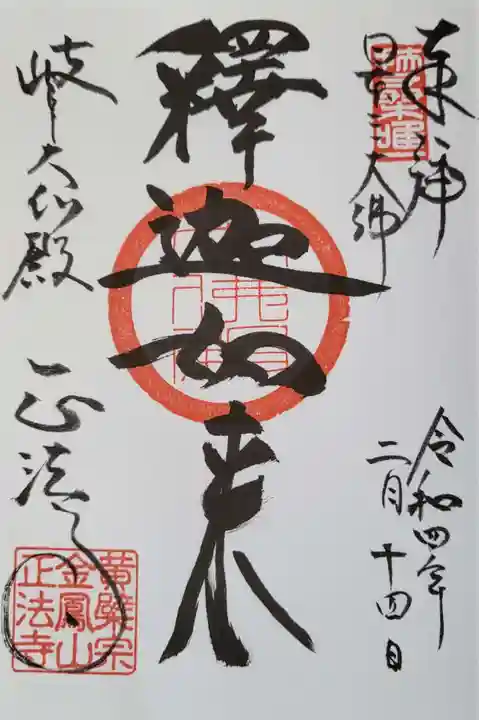 奉拝
日本三大佛
令和四年
二月十四日
釋迦如来
岐阜大仏殿
正法寺
黄檗宗
金鳳山
正法寺